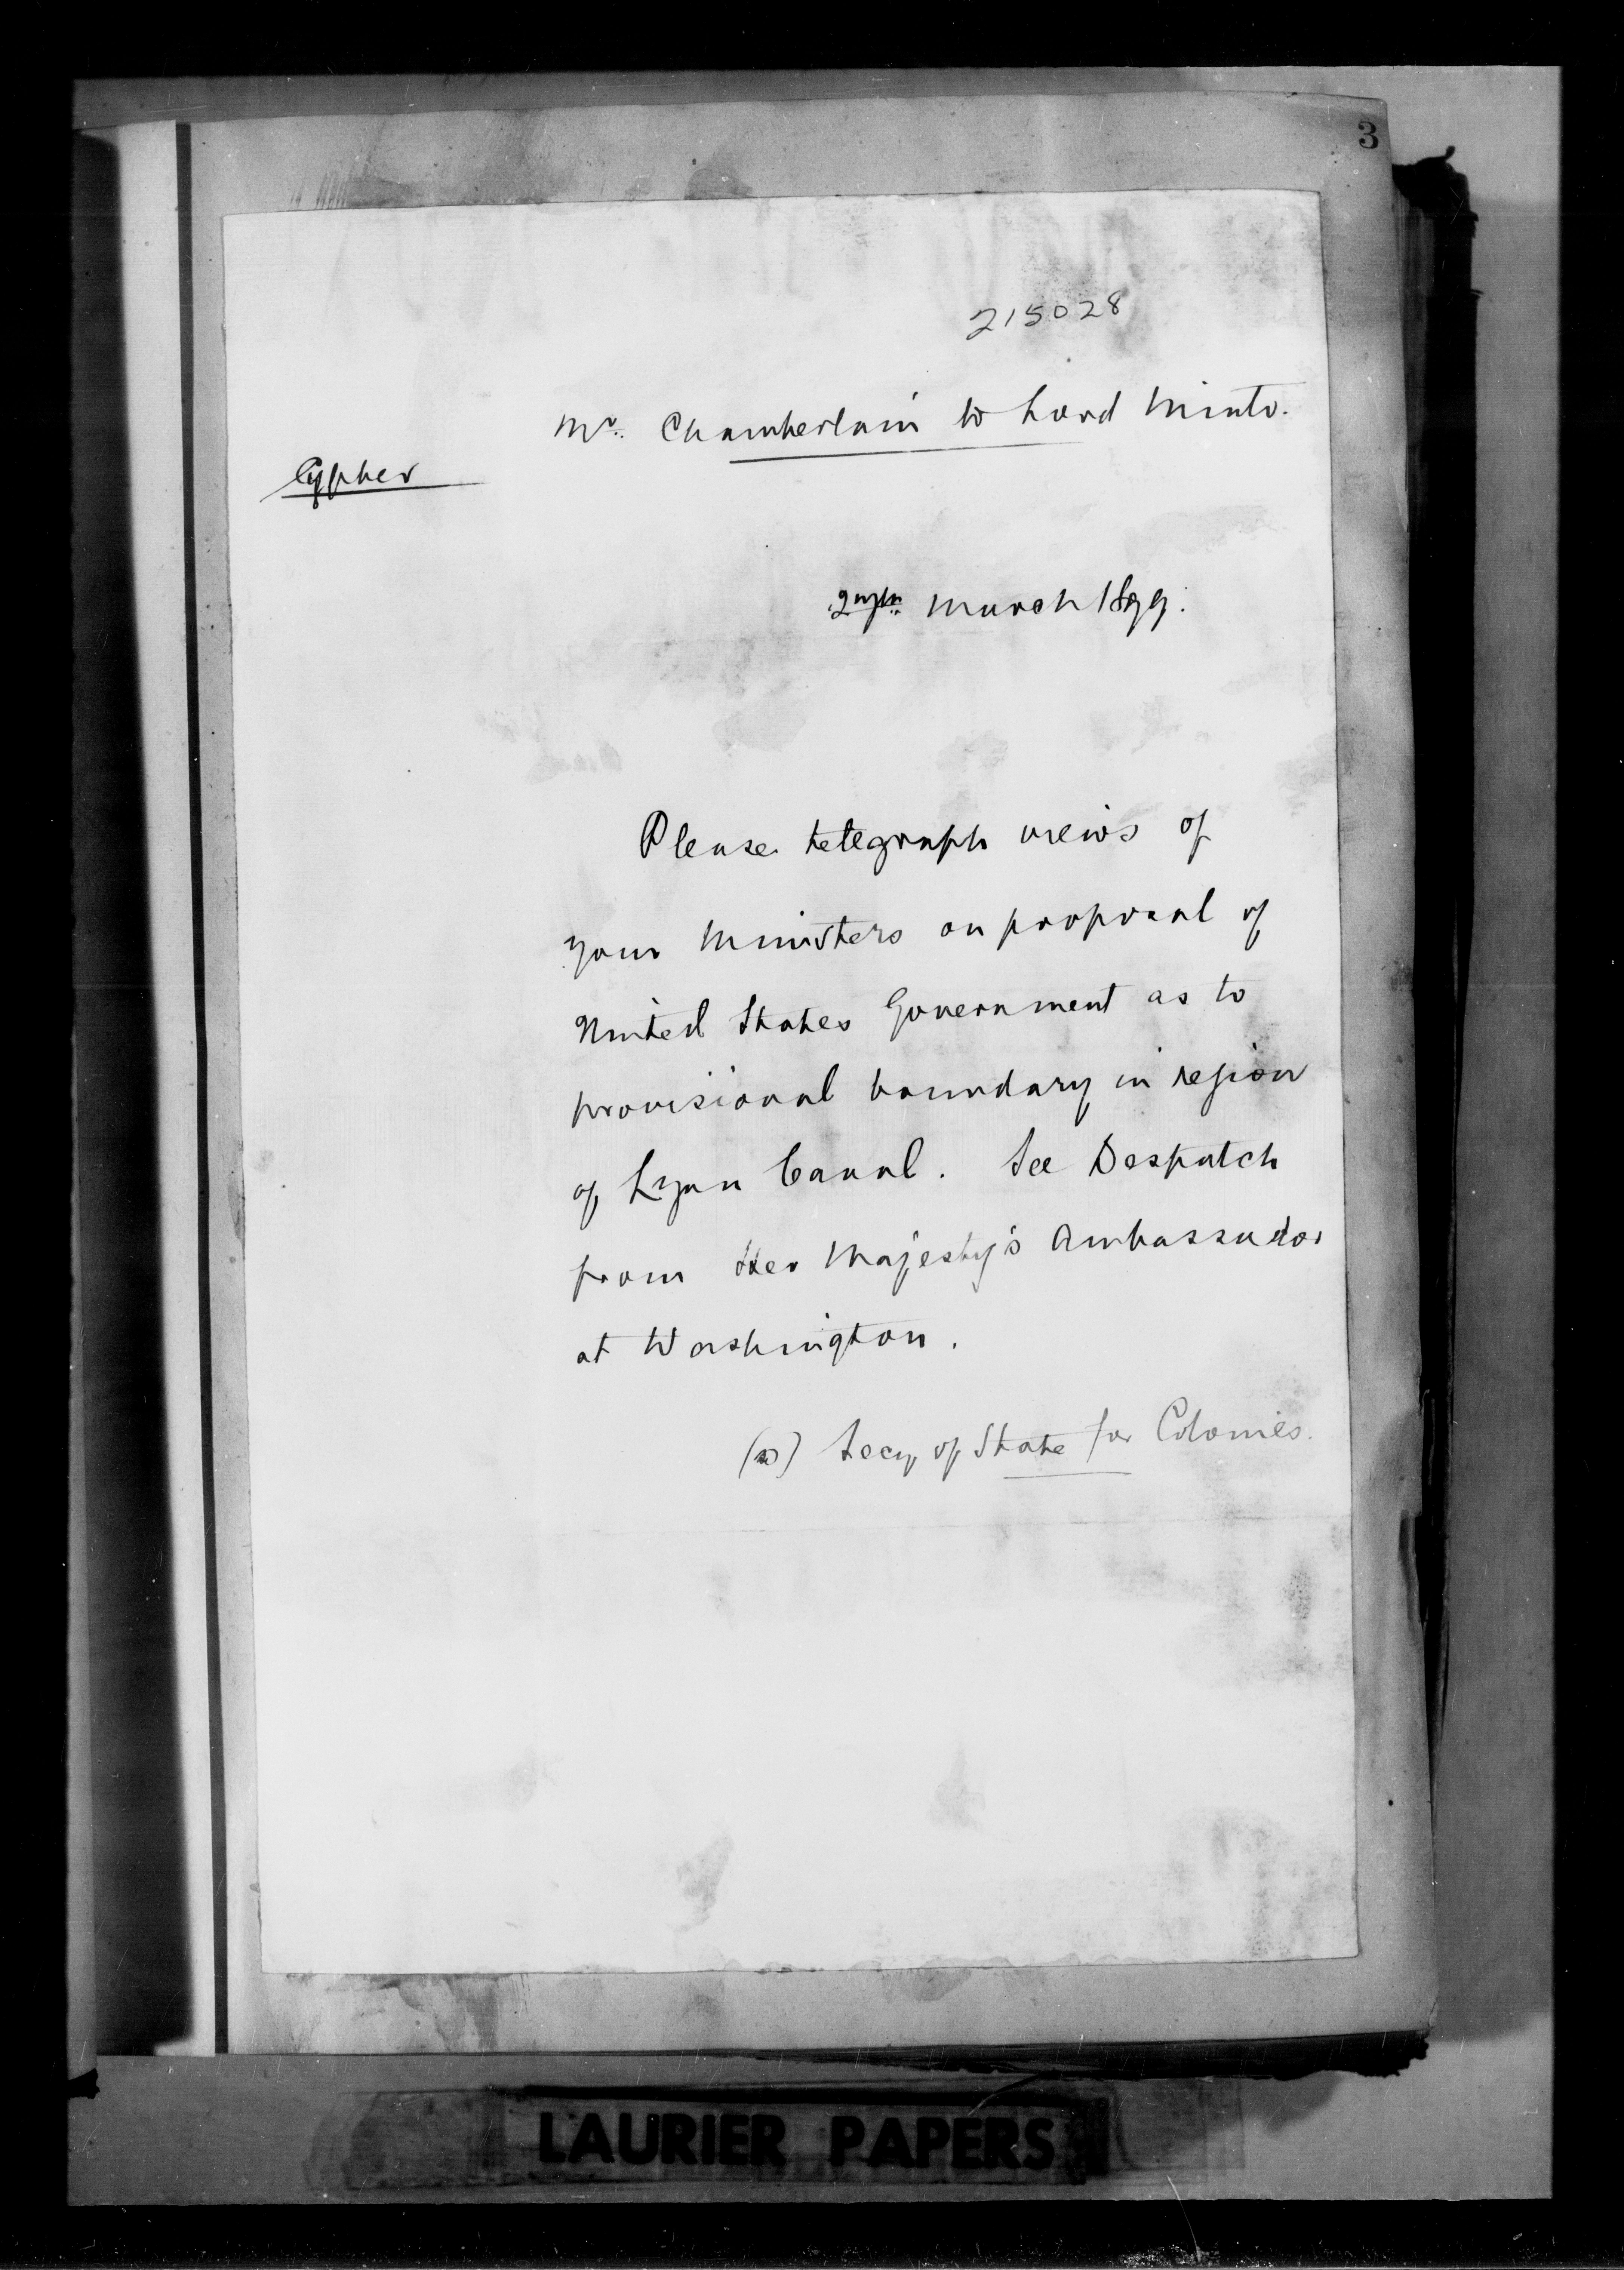 3
215028
Mr. Chamberlain to Lord Minto.
Cypher
27th March 1899.
Please telegraph views of
your Ministers on proposal of
United States Government as to
provisional boundary in region
of Lynn Canal. See Despatch
from Her Majesty's Ambassador
at Washington.
Secy of State for Colonies.
LAURIER PAPERS